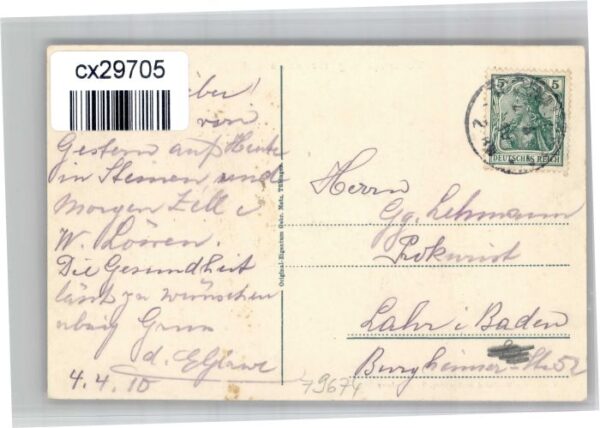 cx29705
Gestern auf Heute
in Steinen und
Morgen Zell i
W. Löwen.
Die Gesundheit
lässt zu wünschen
übrig Gruss
4.4.10
Original-Eigentum Gebr. Metz, Tübingen.
5 5
DEUTSCHES REICH
Herrn
Gg. Lehmann
Prokurist
Lahr i Baden
Burgheimer-Str 52
79674